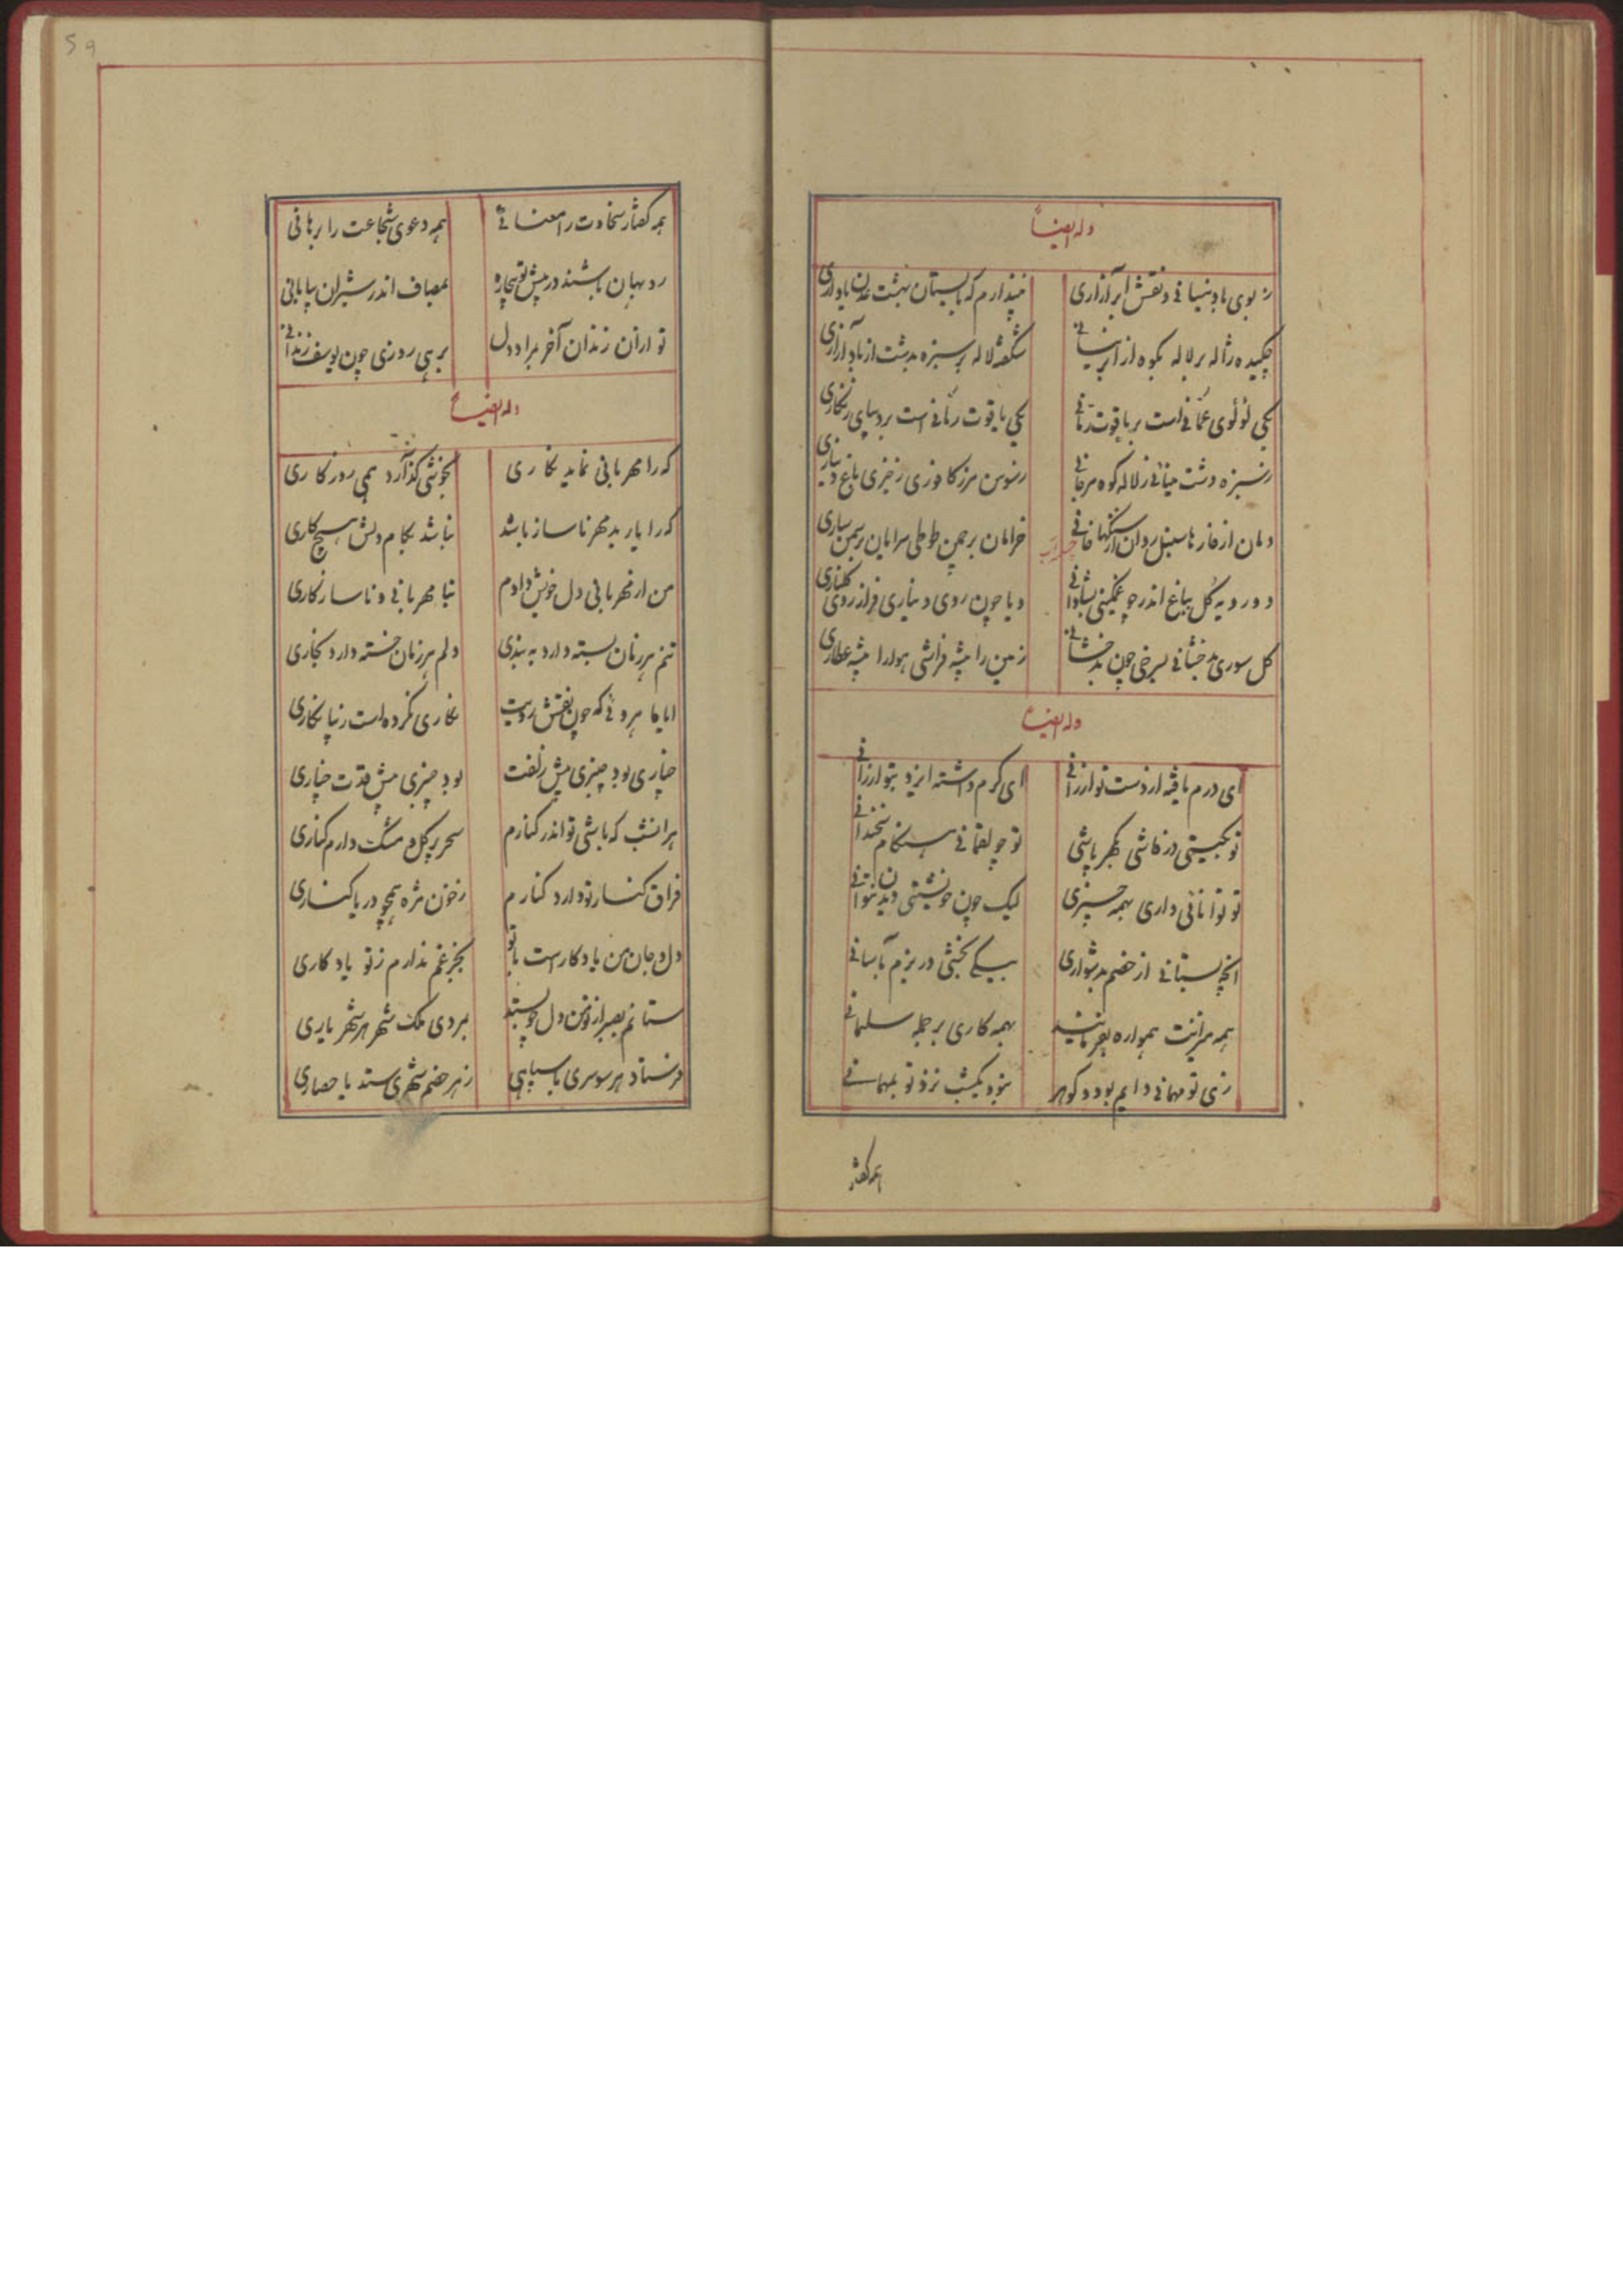 وله ایضاً
ز بوی باد نیسانی و نقش ابر آزاری
نپندارم که با بستان بهشت عدن یاد آری
چکیده ژاله بر لاله بکوه از ابر نیسانی
شکفته لاله بر سبزه بدشت از باد آزاری
یکی لؤلوی عمانی است بر یاقوت رمانی
یکی یاقوت رمانی است بر دیبای زنگاری
ز سبزه دشت مینائی ز لاله کوه مرجانی
ز سوسن مرز کافوری ز خیری باغ دیناری
دمان از غار ها سیل روان از سنگها خانی
خرامان بر چمن طوطی سرایان بر سمن ساری
دو رویه گل بباغ اندر چو غمگینی بشادانی
و یا چون روی دیناری فراز روی گلناری
گل سوری بدخشانی بسرخی چون بدخشانی
زمین را پیشه فراشی هوا را پیشه عطاری
وله ایضاً
ای درم یافته از دست تو ارزانی
ای کرم داشته ایزد بتو ارزانی
تو بگیتی در فاشی بگهر پاشی
تو چو لقمانی هنگام سخندانی
تو توانائی داری بهمه چیزی
لیک چون خویشتنی دید نتوانی
آنچه بستانی از خصم بدشواری
بیکی بخشی در بزم بآسانی
همه مرانت همواره بفرمانند
بهمه کاری بر جمله سلیمانی
زی تو مهمانی دایم بود و گوهر
نبود یکشب نزد تو بمهمانی
همه گفتار
همه گفتار سخاوت را معنائی
همه دعوی شجاعت را برهانی
روبهان باشند در پیش تو بیچاره
بمصاف اندر شیران بیابانی
تو از آن زندان آخر بمراد دل
برهی روزی چون یوسف زندانی
وله ایضاً
که را مهربانی نماید نگاری
بخوشی گذارد همی روزگاری
که را یار بدمهر ناساز باشد
نباشد بکام دلش هیچ کاری
من از مهربانی دل خویش دادم
بنا مهربانی و ناسازگاری
تنم هر زمان بسته دارد به بندی
دلم هر زمان خسته دارد بخاری
ایا ماهروئی که چون نقش رویت
نگاری نکرده است زیبا نگاری
چناری بود چنبری پیش زلفت
بود چنبری پیش قدت چناری
هر آنشب که باشی تو اندر کنارم
سحر پر گل و مشک دارم کناری
فراق کنار تو دارد کنارم
ز خون مژه همچو دریا کناری
دل و جان من یادگار است با تو
بجز غم ندارم ز تو یادگاری
ستانم بصبر از تو من دل چو بستد
بمردی ملک شهر هر شهریاری
فرستاد هر سو سری با سپاهی
ز هر خصم شهری ستد با حصاری